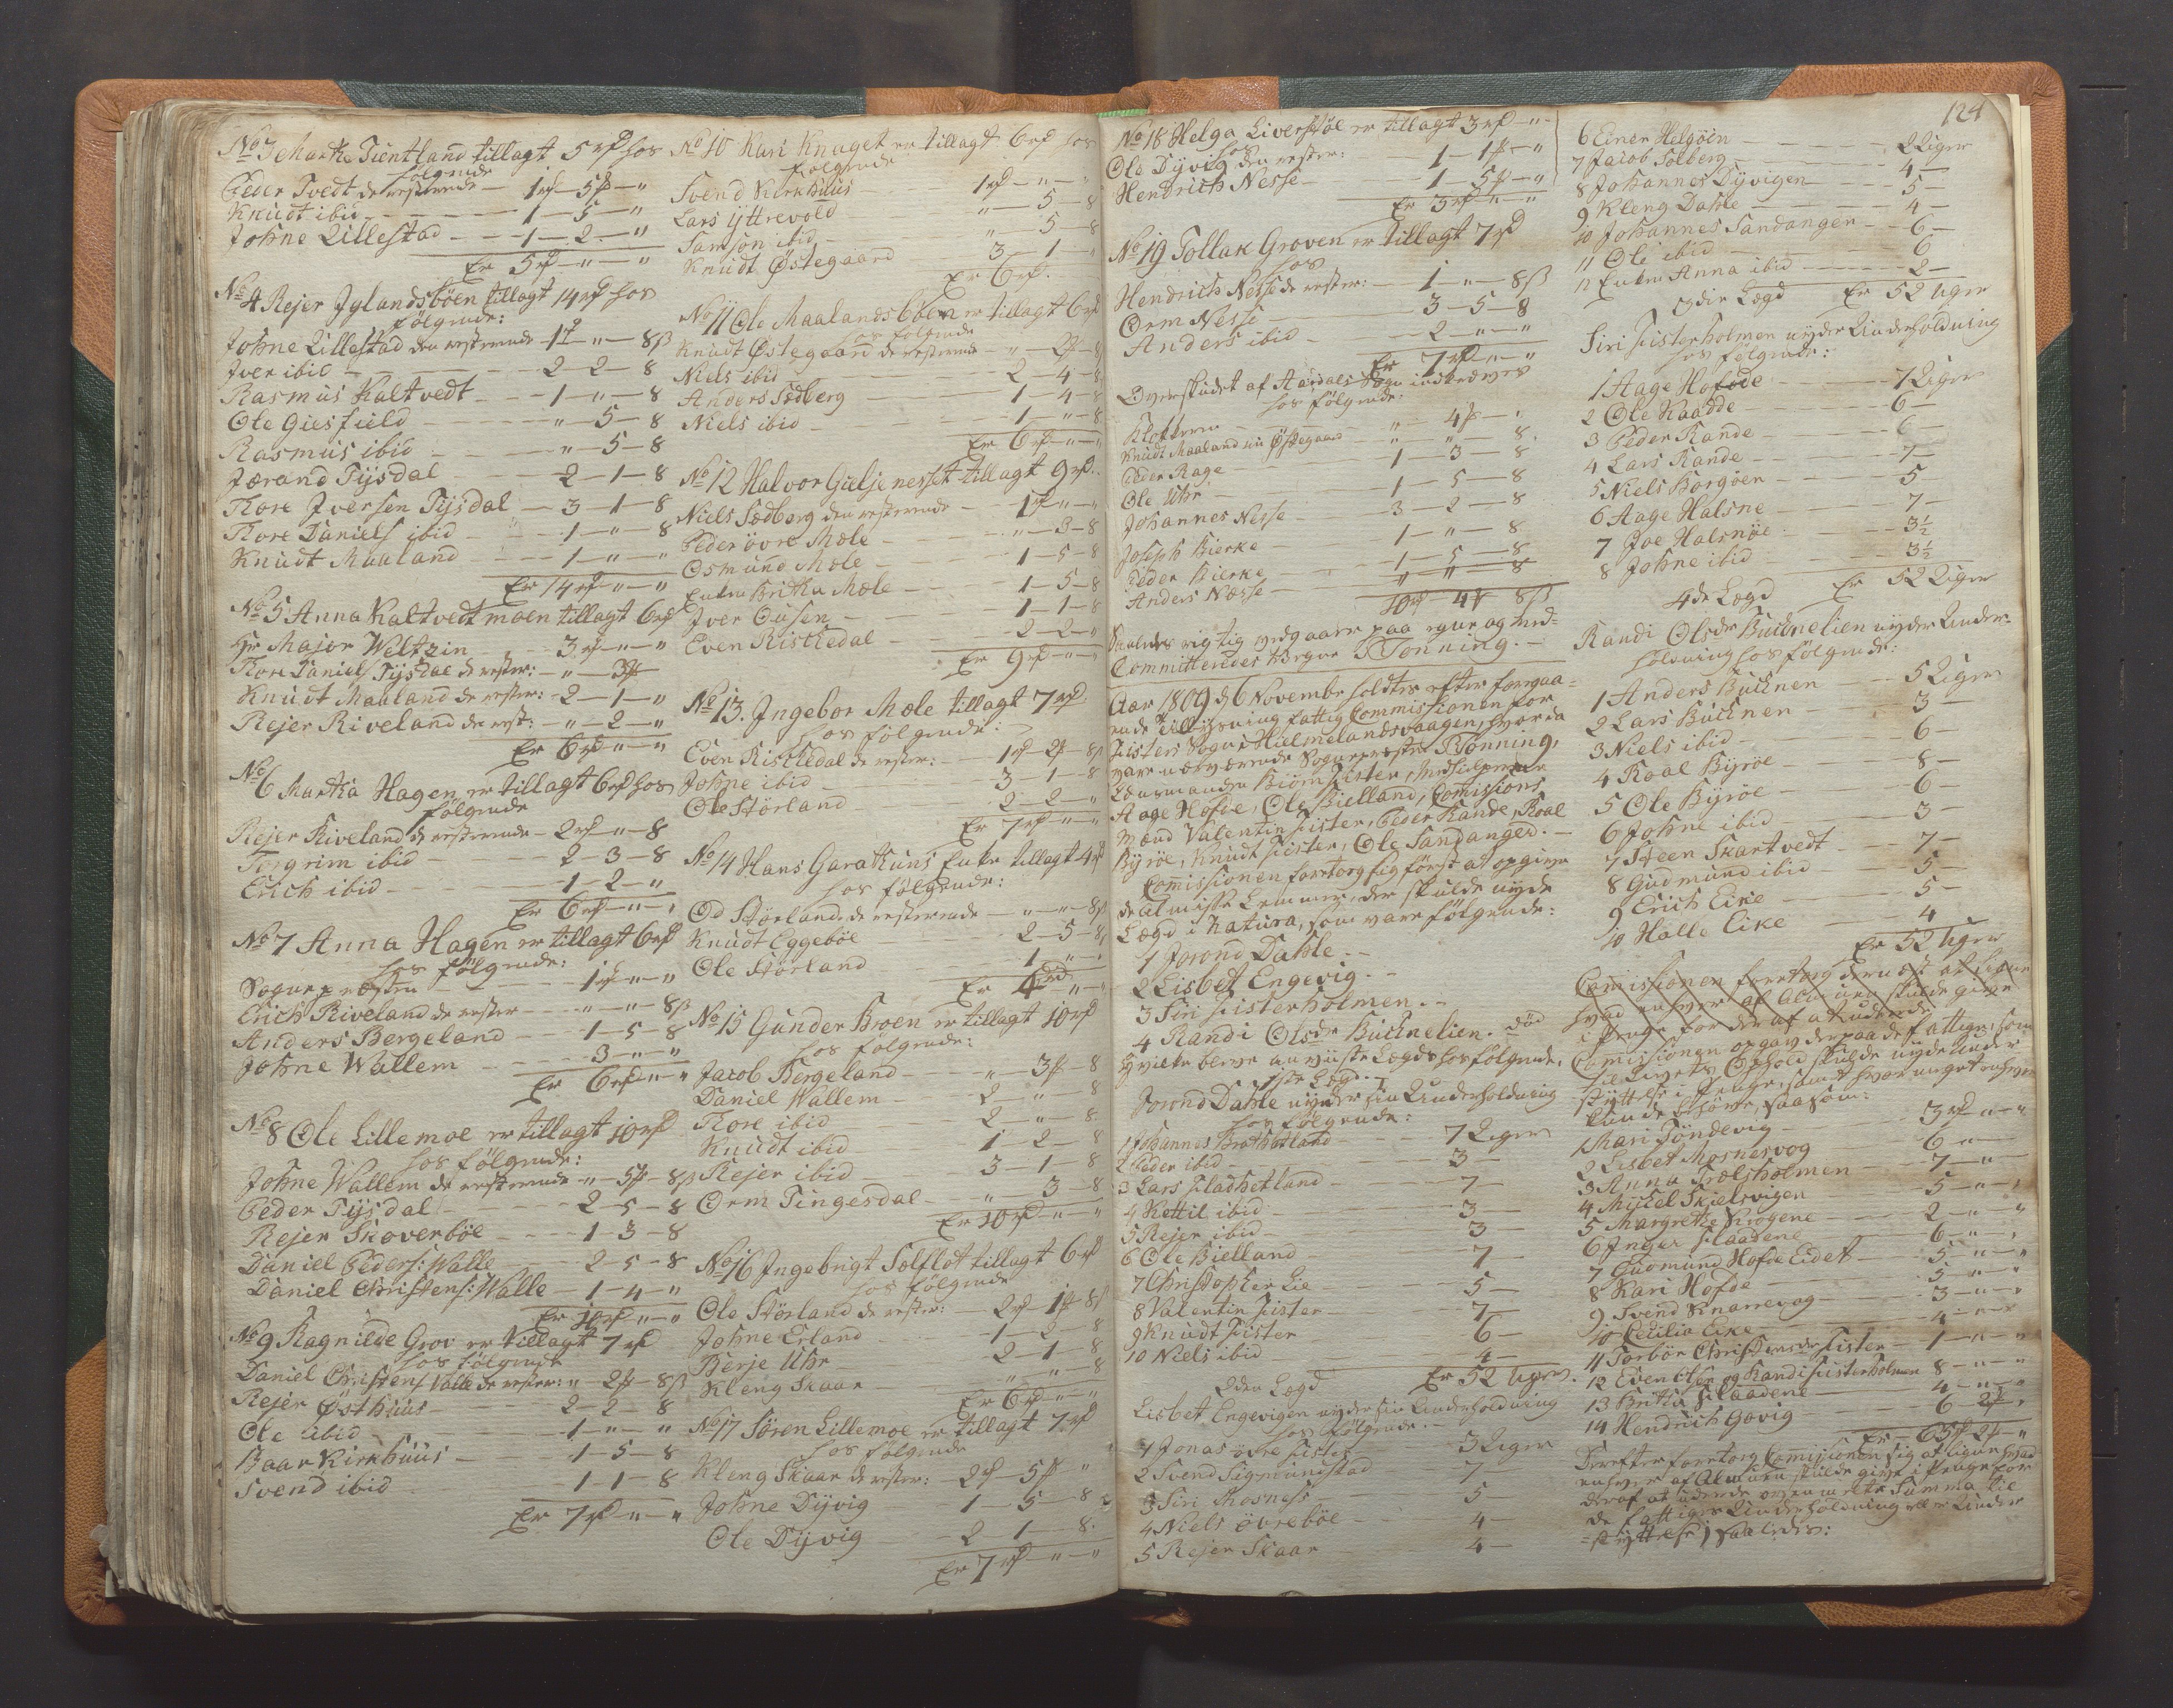 No 3 Martha Tientland tillagt 5 rd hos
følgende
Peder Tvedt de resterende — 1 rd — 5 ₰ — "
Knudt ibid — 1 — 5 — "
Johne Lillestad — 1 — 2 — "
Er 5 rd — " — "
No 4 Rejer Jylandsbøen tillagt 14 rd hos
følgende:
Johne Lillestad den resterende 1 — " — 8 ß
Iver ibid — 2 — 2 — 8
Rasmus Kaltvedt — 1 — " — 8
Ole Giesfield — " — 5 — 8
Rasmus ibid — " — 5 — 8
Jærand Tysdal — 2 — 1 — 8
Thore Iversen Tysdal — 3 — 1 — 8
Thore Daniels ibid — 1 — " — 8
Knudt Maaland — 1 — " — "
Er 14 rd — " — "
No 5 Anna Kaltvedtmoen tillagt 6 rd
Hr Major Weltzin — 3 rd — " — "
Thore Daniels Tysdal de rester: — " — 3 ₰
Knudt Maaland de rester: — 2 — 1 — "
Rejer Riveland de rest: — " — 2 — "
Er 6 rd — " — "
No 6 Martha Hagen er tillagt 6 rd hos
følgende
Rejer Riveland de resterende — 2 rd — " — 8
Torgrim ibid — 2 — 3 — 8
Erich ibid — 1 — 2 — "
Er 6 rd — " — "
No 7 Anna Hagen er tillagt 6 rd
hos følgende:
Sognepræsten — 1 rd — " — "
Erich Riveland de rester — " — " — 8 ß
Anders Bergeland — 1 — 5 — 8
Johne Wallem — 3 — " — "
Er 6 rd — " — "
No 8 Ole Lillemoe er tillagt 10 rd
hos følgende:
Johne Wallem de resterende — " — 5 ₰ — 8 ß
Peder Tysdal — 2 — 5 — 8
Rejer Skoverbøe — 1 — 3 — 8
Daniel Peders: Walle — 2 — 5 — 8
Daniel Christens: Walle — 1 — 4 — "
Er 10 rd — " — "
No 9 Ragnilde Grov er tillagt 7 rd
hos følgende
Daniel Christens Valle de rester: " — 2 ₰ — 8 ß
Rejer Østhuus — 2 — 2 — 8
Ole ibid — 1 — " — "
Baar Kirkhuus — 1 — 5 — 8
Svend ibid — 1 — 1 — 8
Er 7 rd — " — "
No 10 Kari Knaget er tillagt 6 rd hos
følgende
Svend Kirkhuus — 1 rd — " — "
Lars Yttrevold — " — 5 — 8
Samson ibid — " — 5 — 8
Knudt Østegaard — 3 — 1 — "
Er 6 rd.
No 11 Ole Maalandsbøen er tillagt 6 rd
hos følgende
Knudt Østegaard de resterende — " — 2 ₰ — 8
Niels ibid — 2 — 4 — 8
Anders Sedberg — 1 — 4 — 8
Niels ibid — 1 — " — 8
Er 6 rd — " — "
No 12 Halvor Gieljenesset tillagt 9 rd.
Niels Sedberg den resterende — 1 rd — " — "
Peder øvre Mæle — " — 3 — 8
Osmund Mæle — 1 — 5 — 8
Enken Britha Mæle — 1 — 5 — 8
Iver Ousen — 1 — 1 — 8
Even Riskedal — 2 — 2 — "
Er 9 rd — " — "
No 13. Ingebor Mæle tillagt 7 rd
hos følgende:
Even Riskedal de rester: — 1 rd — 2 ₰ — 8 ß
Johne ibid — 3 — 1 — 8
Ole Størland — 2 — 2 — "
Er 7 rd — " — "
No 14 Hans Garathuns Enke tillagt 4 rd
hos følgende:
Od Størland de resterende — " — " — 8 ß
Knudt Eggebøe — 2 — 5 — 8
Ole Størland — 1 — " — "
Er 4 rd — " — "
No 15 Gunder Broen er tillagt 10 rd
hos følgende:
Jacob Bergeland — " — 3 ₰ — 8
Daniel Wallem — 2 — " — 8
Thore ibid — 2 — " — 8
Knudt ibid — 1 — 2 — 8
Rejer ibid — 3 — 1 — 8
Orm Tingesdal — " — 3 — 8
Er 10 rd — " — "
No 16 Ingebrigt Solflot tillagt 6 rd
hos følgende
Ole Størland de rester: — 2 rd 1 ₰ — 8 ß
Johne Erland — 1 — 2 — 8
Berje Uhr — 2 — 1 — 8
Kleng Skaar — " — " — 8
Er 6 rd — " — "
No 17 Søren Lillemoe er tillagt 7 rd
hos følgende
Kleng Skaar de rester: — 2 rd — 5 ₰ "
Johne Dyvig — 1 — 5 — 8
Ole Dyvig — 2 — 1 — 8
Er 7 rd — " — "
No 18 Helga Liverstøl er tillagt 3 rd — " —
hos
Ole Dyvig den rester: — 1 — 1 ₰ — "
Hendrich Nesse — 1 — 5 ₰ — "
Er 3 rd — " — "
No 19 Tollak Groven er tillagt 7 rd
hos
Hendrich Nesse de rester: — 1 — " — 8 ß
Orm Nesse — 3 — 5 — 8
Anders ibid — 2 — " — "
Er 7 rd — " — "
Overskudet af Aardals Sogn indkræves
hos følgende:
Klokkeren — " — 4 ₰ — "
Knudt Maaland nu Østegaard — " — " — 8
Peder Rage — 1 — 3 — 8
Ole Uhr — 1 — 5 — 8
Johannes Nesse — 3 — 2 — 8
Joseph Bierke — 1 — " — 8
Peder Bierke — 1 — 5 — 8
Anders Næsse — " — " — 8
10 rd — 4 ₰ 8 ß
Saaledes rigtig vedgaaer paa egne og med-
Committeredes vegne STonning. —
Aar 1809 d 6 Novembr holdtes efter foregaa-
ende Tillysning fattig Commissionen for
Fisters Sogn i Hielmelandsvaagen, hvor da
vare nærværende Sognepræsten STonning,
Lensmanden Biørn Fister, Medhielperne
Aage Hofde, Ole Bielland, Comissions
Mænd Valentin Fister, Peder Rande, Roal
Byrøe, Knudt Fister, Ole Sandanger. —
Comissionen foretog sig først at opgive
de Almisse Lemmer, der skulde nyde
Lægd i Natura, som vare følgende:
1 Jorond Dahle. —
2 Lisbet Engevig. —
3 Siri Fisterholmen. —
4 Randi Olsdr Buchnelien. død
hvilke bleve anviiste Lægds hos følgende.
1ste Lægd.
Jorond Dahle nyder sin Underholdning
hos følgende:
1 Johannes Bratthetland — 7 Uger
2 Peder ibid — 3 —
3 Lars Fladhetland — 7 —
4 Kettil ibid — 3 —
5 Rejer ibid — 3 —
6 Ole Bielland — 7
7 Christopher Lie — 5 —
8 Valentin Fister — 7 —
9 Knudt Fister — 6 —
10 Niels ibid — 4 —
Er 52 Uger.
2den Lægd
Lisbet Engevigen nyder sin Underholdning
hos følgende. —
1 Jonas øvre Fister — 3 Uger
2 Svend Sigmundstad — 7
3 Siri Mosness — 5 —
4 Niels Øvrebøe — 4 —
5 Rejer Skaar — 4 —
124
6 Einer Helgøen — 2 Uger
7 Jacob Solberg — 4 —
8 Johannes Dyvigen — 5 —
9 Kleng Dahle — 4 —
10 Johannes Sandangen — 6 —
11 Ole ibid — 6
12 Enken Anna ibid — 2 —
Er 52 Uger
3die Lægd
Siri Fisterholmen nyder Underholdning
hos følgende:
1 Aage Hofde — 7 Uger
2 Ole Kaadde — 6 —
3 Peder Rande — 6 —
4 Lars Rande — 7 —
5 Niels Borgøen — 5
6 Aage Halsne — 7 —
7 Joe Halsnøe — 3½
8 Johne ibid — 3½
Er 52 Uger
4de Lægd
Randi Olsdr Buchnelien nyder Under-
holdning hos følgende:
1 Anders Buchnen — 5 Uger
2 Lars Buchnen — 3 —
3 Niels ibid — 6 —
4 Roal Byrøe — 8 —
5 Ole Byrøe — 6 —
6 Johne ibid — 3 —
7 Steen Skartvedt — 7 —
8 Gudmund ibid — 5 —
9 Erich Eike — 5 —
10 Halle Eike — 4
Er 52 Uger
Comissionen foretog dernæst at ligne
hvad enhver af Almuen skulde give
i Penge for deraf at udrede
Comissionen opgav derpaa de fattige, som
til Livets Ophold skulde nyde Under
støttelse i Penge, samt hvor meget enhver
kunde behøve, saasom:
1 Mari Tøndevig — 3 rd — " — "
2 Lisbet Mosnesvog — 6 — " —
3 Anna Trælsholmen — 7 — " —
4 Michel Skielsvigen — 5 — " —
5 Margrethe Krogene — 2 — " — "
6 Inger Flaadene — 6 — " —
7 Gudmund Hofde Eidet — 5 — " — "
8 Kari Hofde — 5 — " — "
9 Svend Knarrevog — 3 — " — "
10 Cecilia Eike — 4 — " — "
11 Torbør Christensdr Fister — 1 — " — "
12 Even Olsen og Randi Fisterholmen 8 — " — "
13 Britha Flaadene — 4 — " — "
14 Hendrich Gøvig — 6 — 2 ₰ "
Er — 65 rd 2 ₰ — "
Derefter foretog Comissionen sig at ligne hvad
enhver af Almuen skulde give i Penge for
deraf at udrede ovenmeldte Summa til
de fattiges Underholdning eller Under
støttelse, saaledes: